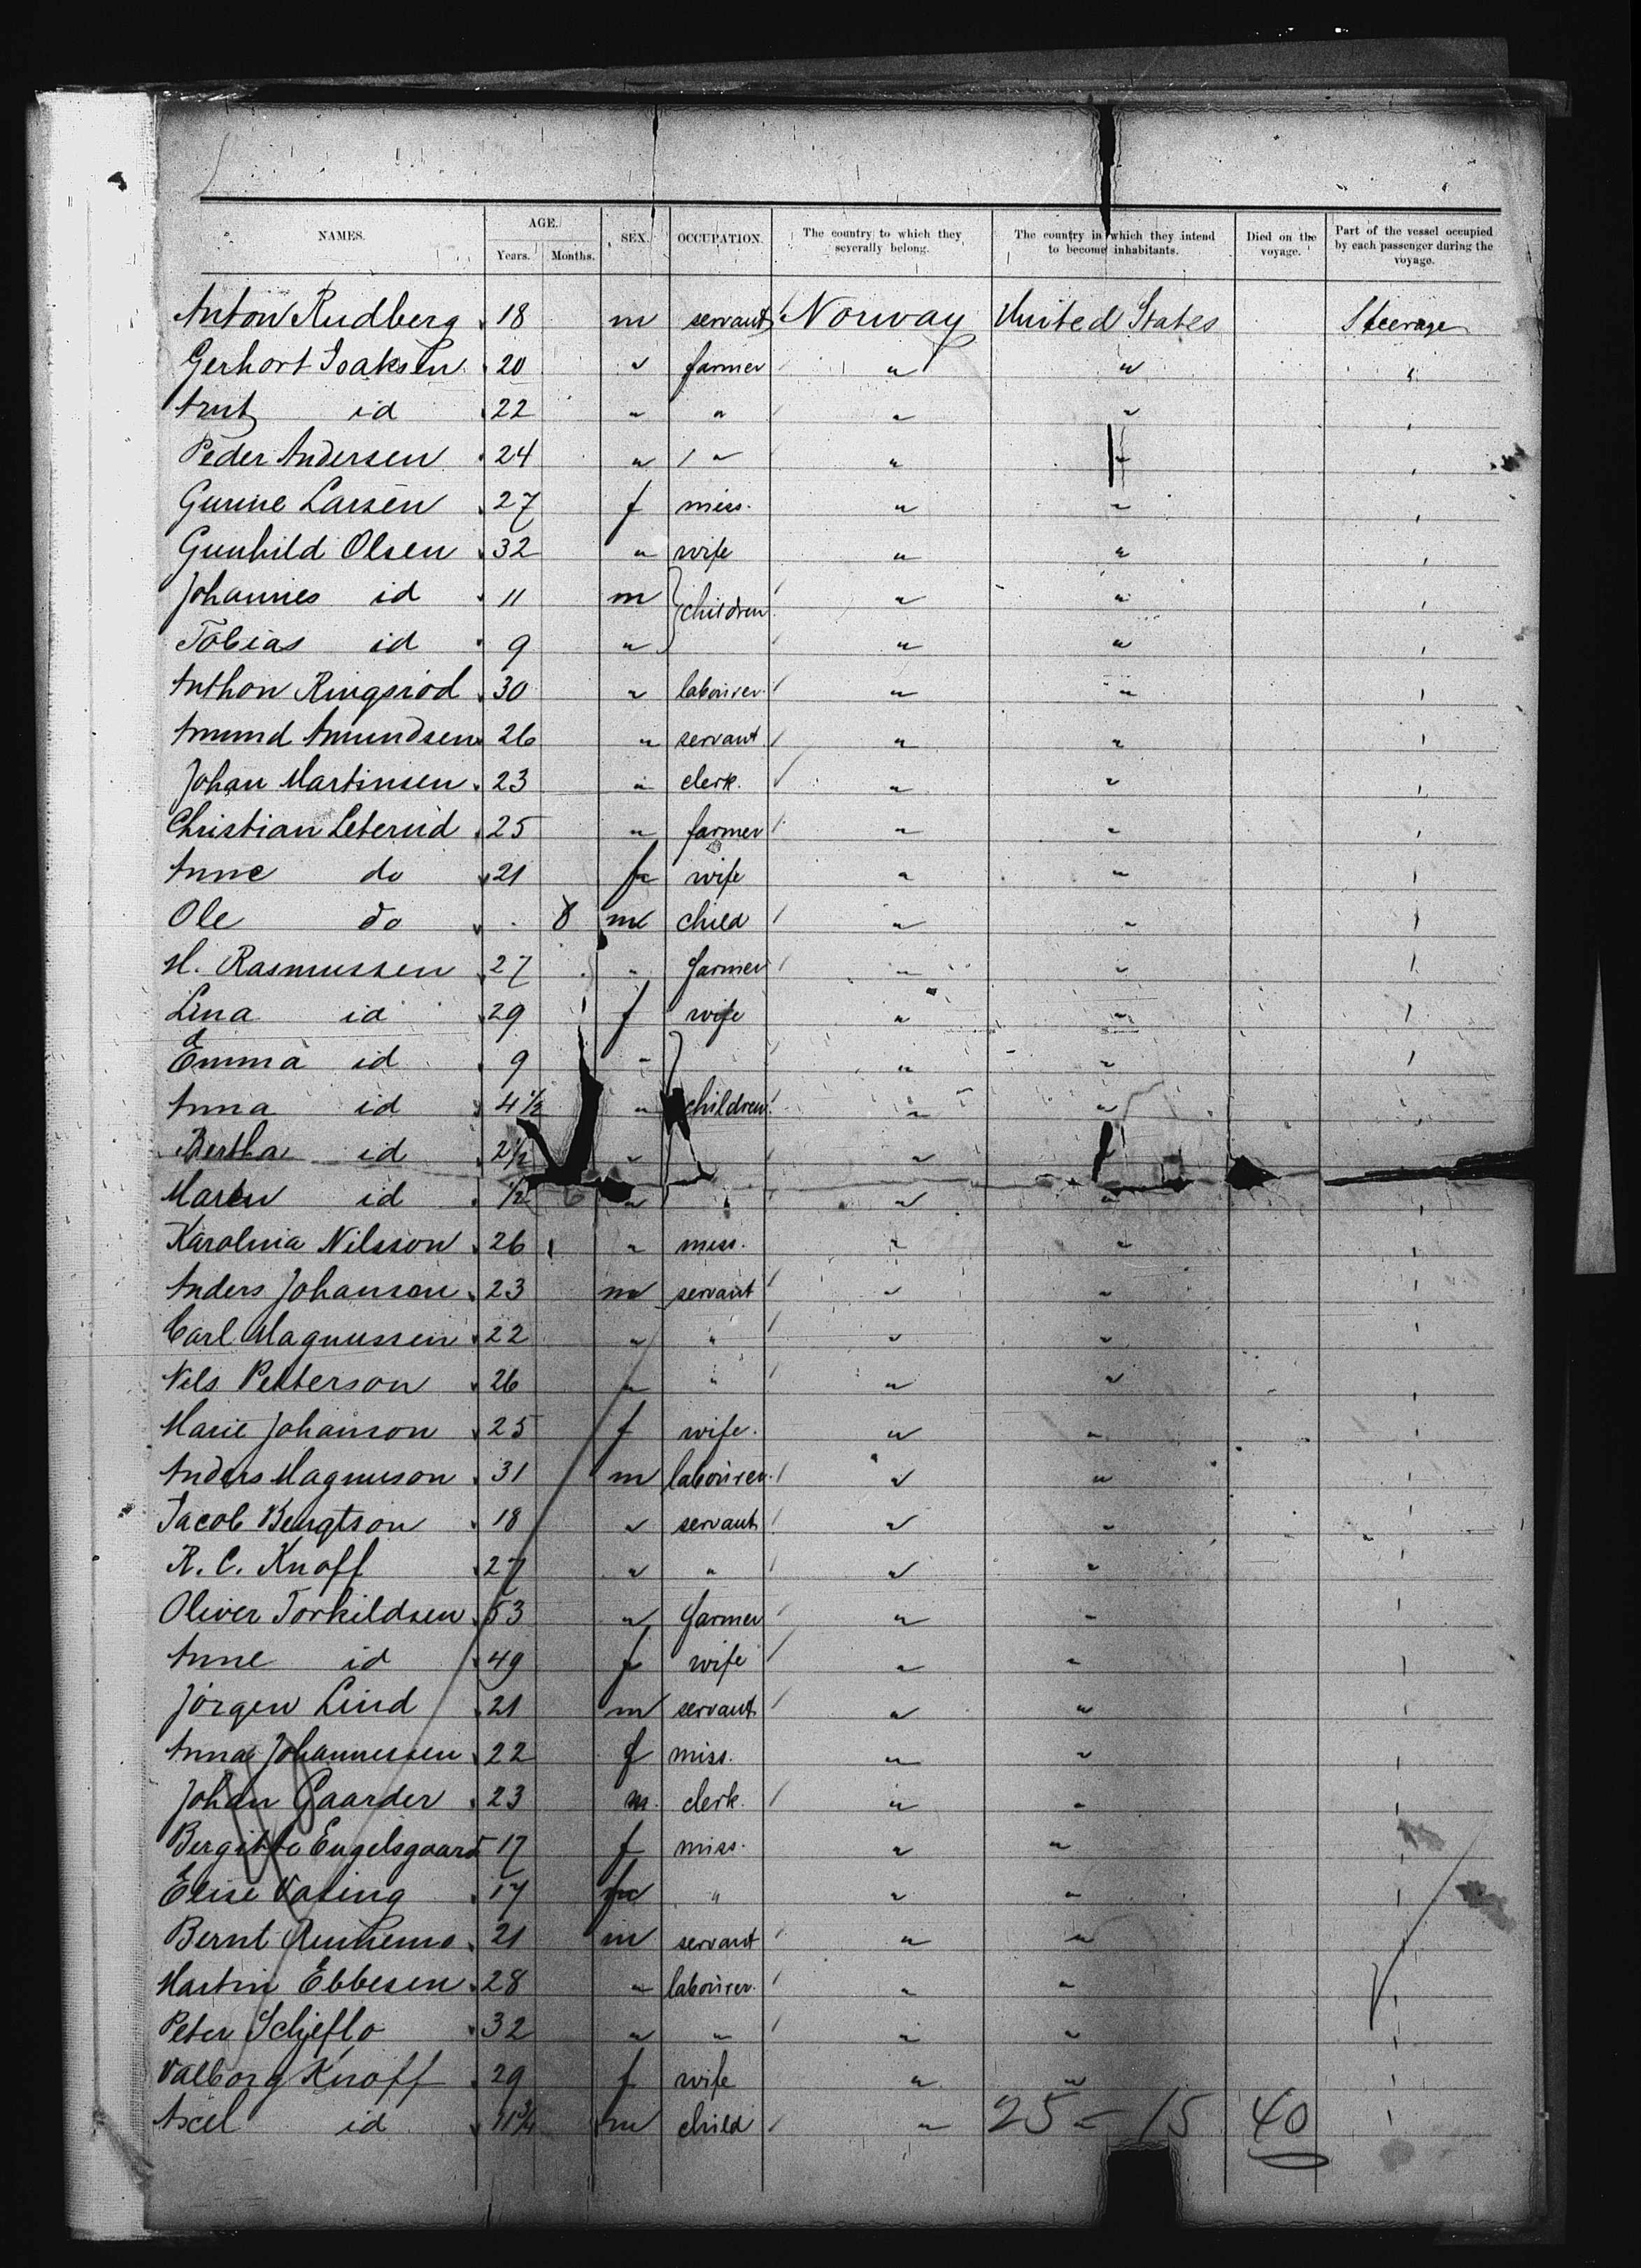 NAMES. AGE. SEX. OCCUPATION. The country to which they severally belong. The country in which they intend to become inhabitants. Died on the voyage. Part of the vessel occupied by each passenger during the voyage.
Years. Months.
Anton Rudberg 18 m servant Norway United States Steerage
Gerhort Isaksen 20 " farmer " " "
id 22 " " " " "
Peder Andersen 24 " " " " "
Gurine Larsen 27 f miss. " " "
Gunhild Olsen 32 " wife " " "
Johannes id 11 m children " " "
Tobias id 9 " " " "
Anthon Ringsröd 30 " labourer " " "
Amund Amundsen 26 " servant " " "
Johan Martinsen 23 " clerk. " " "
Christian Leterud 25 " farmer " " "
Anne do 21 f wife " " "
Ole do 8 m child " " "
M. Rasmussen 27 " farmer " " "
Lina id 29 f wife " " "
Emma id 9 " " " "
Anna id 4 1/2 " children " " "
Bertha id 2 1/2 " " "
Maren id 1/2 6 " " " "
Karolina Nilsson 26 " miss. " " "
Anders Johanson 23 m servant " " "
Carl Magnussen 22 " " " " "
Nils Petterson 26 " " " " "
Marie Johanson 25 f wife. " " "
Anders Magnuson 31 m labourer " " "
Jacob Bengtson 18 " servant " " "
R. C. Knoff 27 " " " " "
Oliver Torkildsen 53 " farmer " " "
Anne id 49 f wife " " "
Jörgen Lind 21 m servant " " "
Anna Johannessen 22 f miss. " " "
Johan Gaarder 23 m. clerk. " " "
Bergitte Engelsgaard 17 f miss. " " "
Elise 17 f " " " "
Bernt 21 m servant " " "
Martin Ebbesen 28 " labourer. " " "
Peter Schjeflo 32 " " " " "
Valborg Knoff 29 f wife " " "
Axel id 11 3/4 m child " 25 - 15 40 "